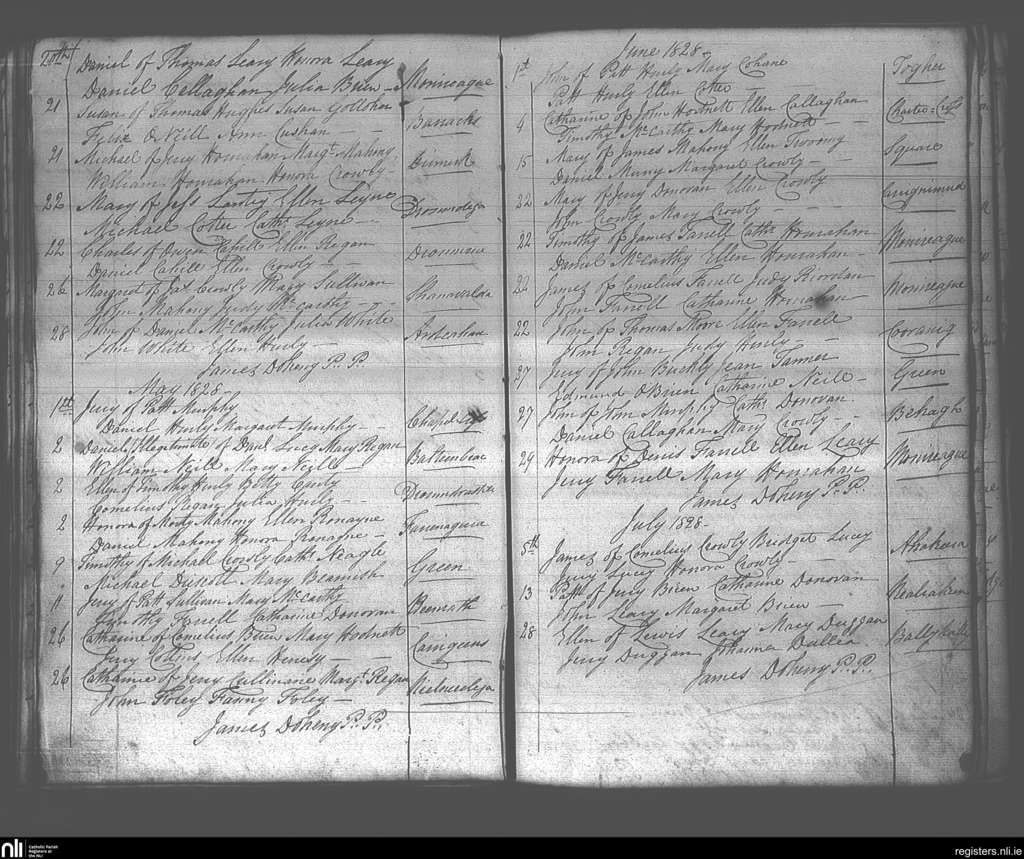 20th Daniel of Thomas Leary Honora Leary
Daniel Callaghan Julia Brien - Monireague
21 Susan of Thomas Hughes Susan
Felix O Neill Ann Cushan - Barracks
21 Michael of Jerry Honrahan Margt. Mahony
William Honrahan Honora Crowly -
22 Mary of Ellen Leyne
Michael Cotter Cathe. Leyne -
22 Charles of Owen Cahill Ellen Regan
Daniel Cahill Ellen Crowly -
26 Margret of Crowly Mary Sullivan
John Mahony Judy McCarthy - Shanavalda
28 John of Daniel McCarthy Julia White
John White Ellen Hurly -
James Doheny P. P.
May 1828 -
1st Jerry of Patt Murphy
Daniel Hurly Margaret Murphy -
2 Daniel Illegitimate of Danl. Lucy Mary Regan
William Neill Mary Neill -
2 Ellen of Timothy Hurly Betty
Cornelius Regan Julia Hurly -
2 Honora of Morty Mahony Ellen Ronayne
Daniel Mahony Honora Ronayne -
9 Timothy of Michael Crowly Cathe. Neagle
Michael Driscoll Mary Beamish Green
11 Jerry of Patt Sullivan Mary McCarthy
Timothy Farrell Catharine Donovan
26 Catharine of Cornelius Brien Mary Hodnett
Jerry Collins Ellen -
26 Catharine of Jerry Cullinane Margt. Regan
John Foley Fanny Foley -
James Doheny P. P.
June 1828 -
1st John of Patt Hurly Mary Cohane Togher
Patt Hurly Ellen
4 Catharine of John Hodnett Ellen Callaghan
Timothy McCarthy Mary Hodnett -
15 Mary of James Mahony Ellen Twomy Square
Daniel Margaret Crowly -
22 Mary of Jerry Donovan Ellen Crowly
John Crowly Mary Crowly -
22 Timothy of James Farrell Cathe. Honrahan Monireague
Daniel McCarthy Ellen Honrahan -
22 James of Cornelius Farrell Judy Riordan Monireague
John Farrell Catharine Honrahan -
22 John of Thomas Ellen Farrell
John Regan Judy Hurly -
27 Jerry of John Buckly Jean Tanner Green
Edmund O Brien Catharine Neill -
27 John of Tom Murphy Cathe. Donovan Behagh
Daniel Callaghan Mary Crowly -
29 Honora of Denis Farrell Ellen Leary Monireague
Jerry Farrell Mary Honrahan
James Doheny P. P.
July 1828 -
5th James of Cornelius Crowly Bridget Lucey
Jerry Lucy Honora Crowly -
13 Patt of Jerry Brien Catharine Donovan
John Leary Margaret Brien -
28 Ellen of Lewis Leary Mary Duggan
Jerry Duggan Johanna
James Doheny P. P.
nli Catholic Parish
Registers at
the NLI
registers.nli.ie